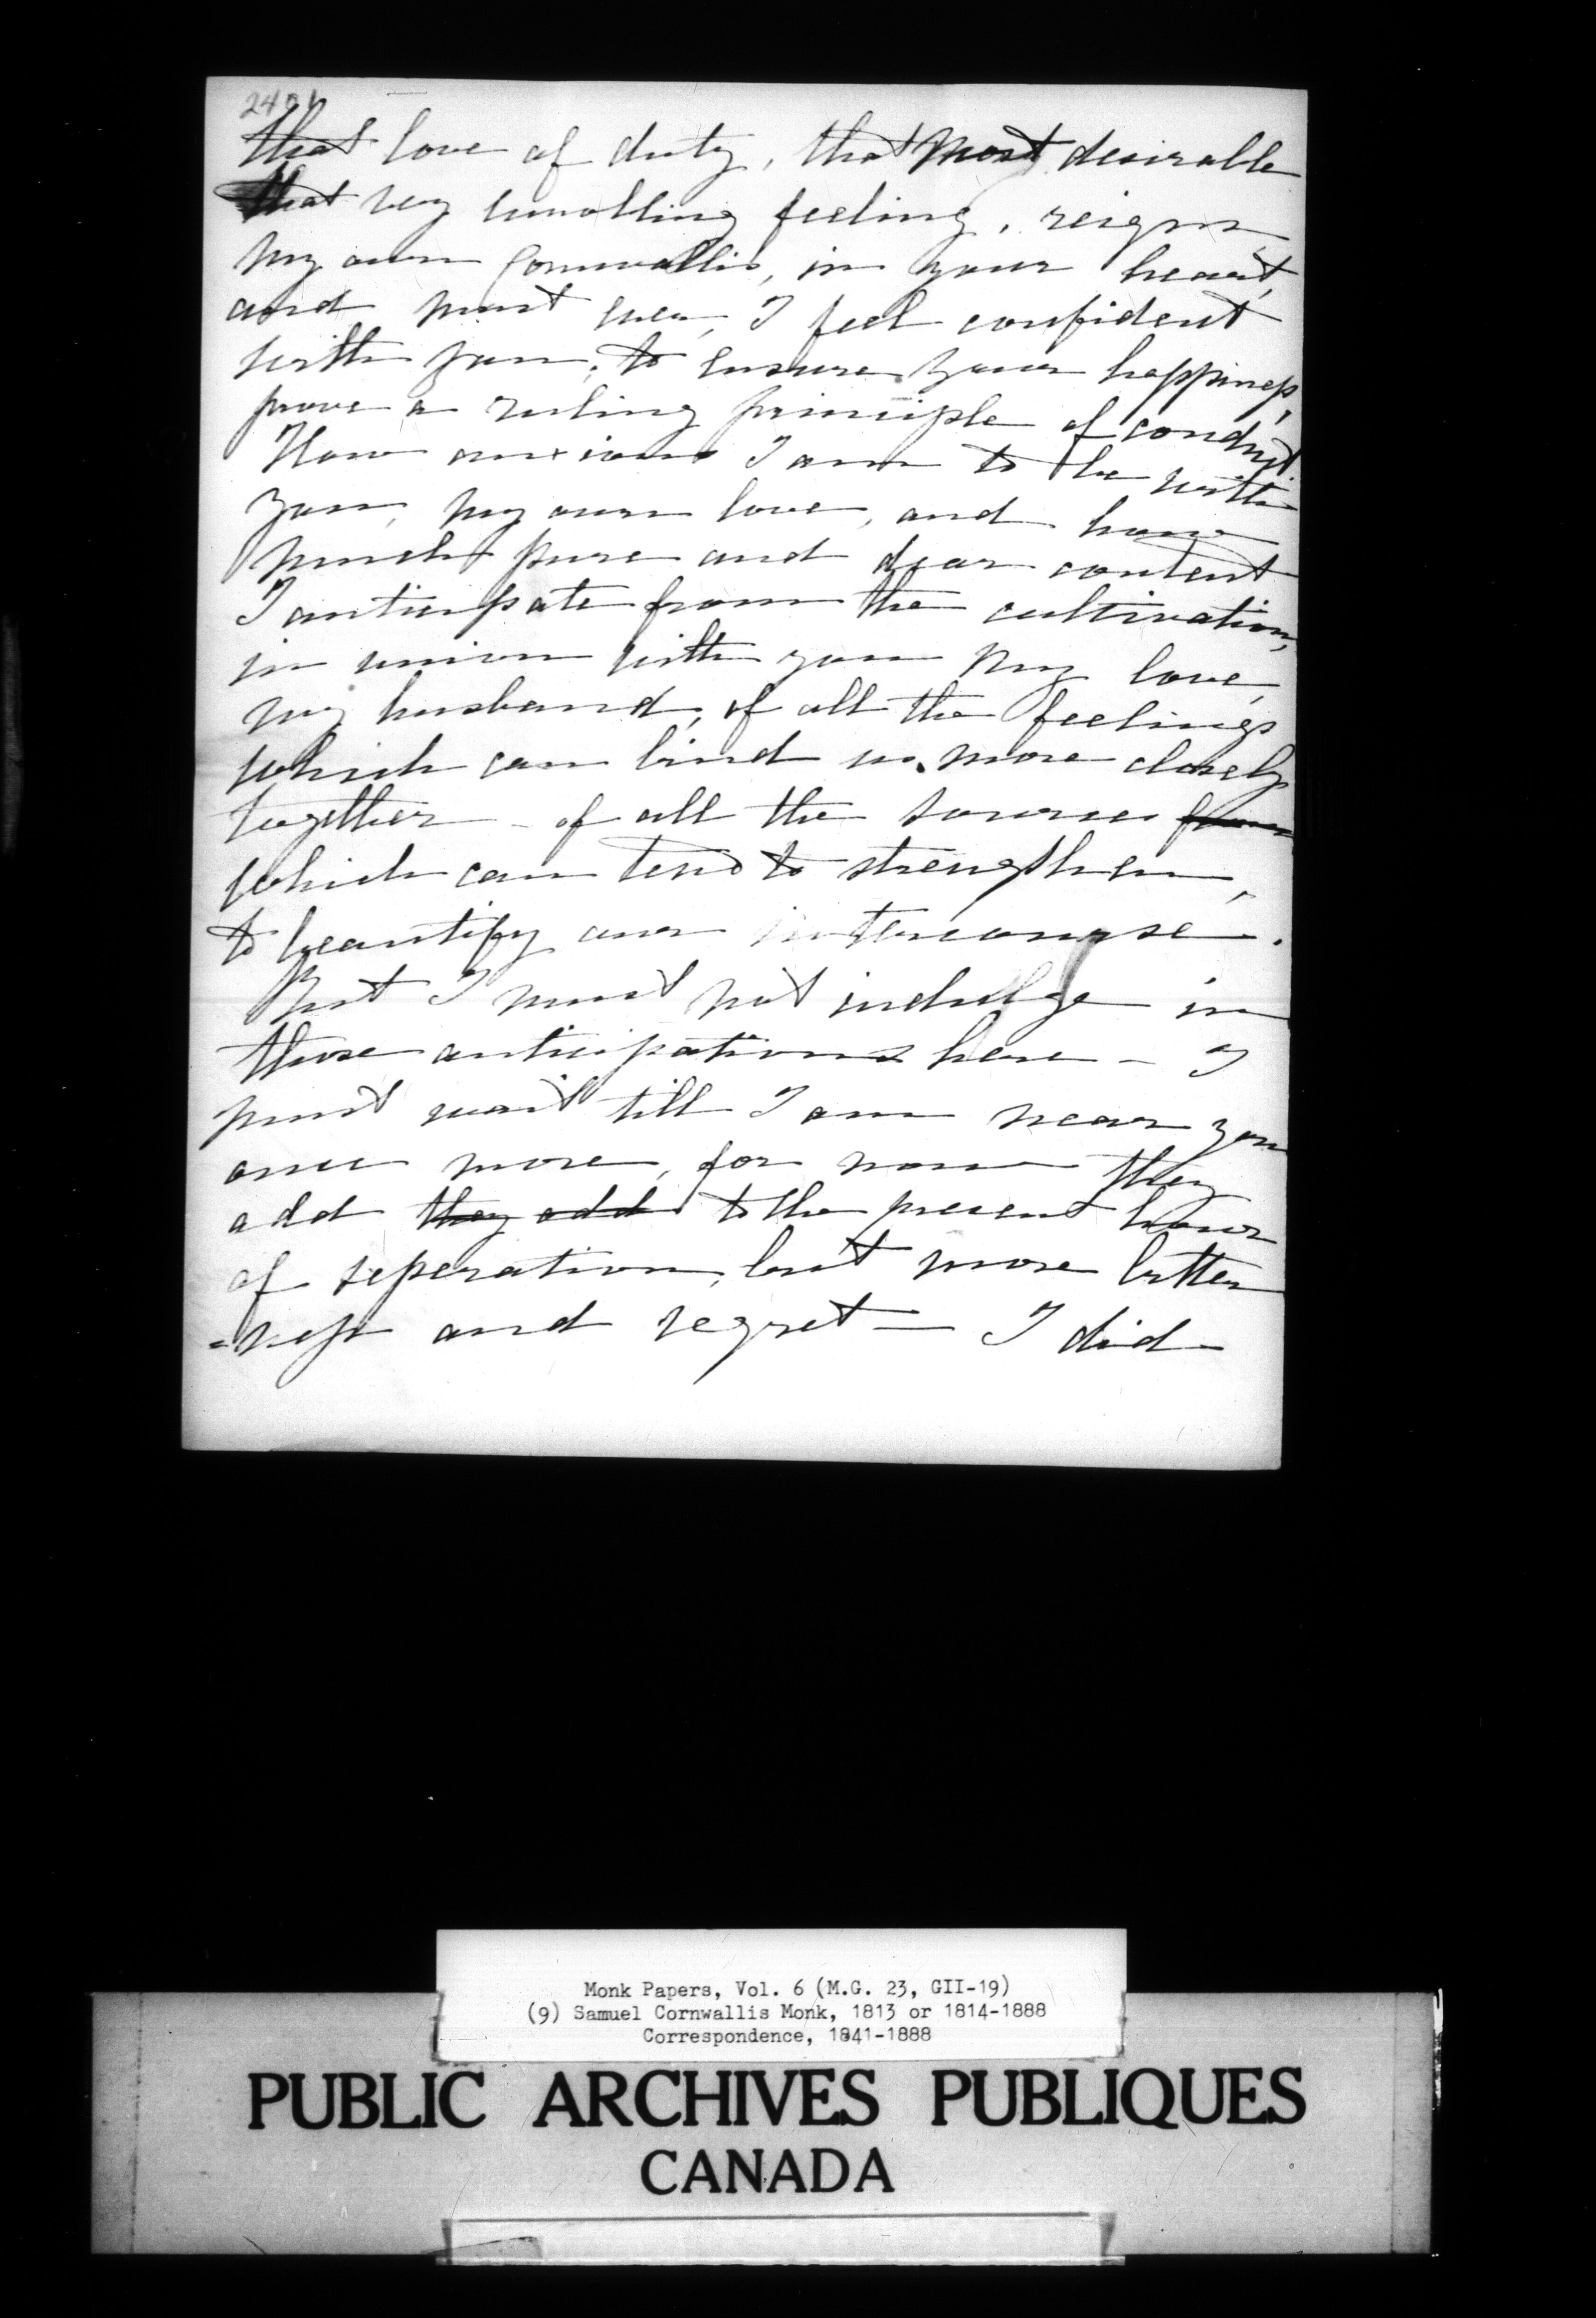 2401
that love of duty, that most desirable
that very ennobling feeling, reigns
my own Cornwallis, in your heart,
and must ever, I feel confident
with you, to ensure your happiness,
prove a ruling principle of conduct.
How anxious I am to be with
you, my own love, and how
much pure and dear content
I anticipate from the cultivation,
in union with you my love,
my husband, of all the feelings
which can bind us more closely
together - of all the sources from
which can tend to strengthen,
to beautify our intercourse.
But I must not indulge in
those anticipations here - I
must wait till I am near you
once more, for now they
add they add to the present hour
of seperation, but more bitter
=ness and regret — I did
Monk Papers, Vol. 6 (M.G. 23, GII-19)
(9) Samuel Cornwallis Monk, 1813 or 1814-1888
Correspondence, 1841-1888
PUBLIC ARCHIVES PUBLIQUES
CANADA